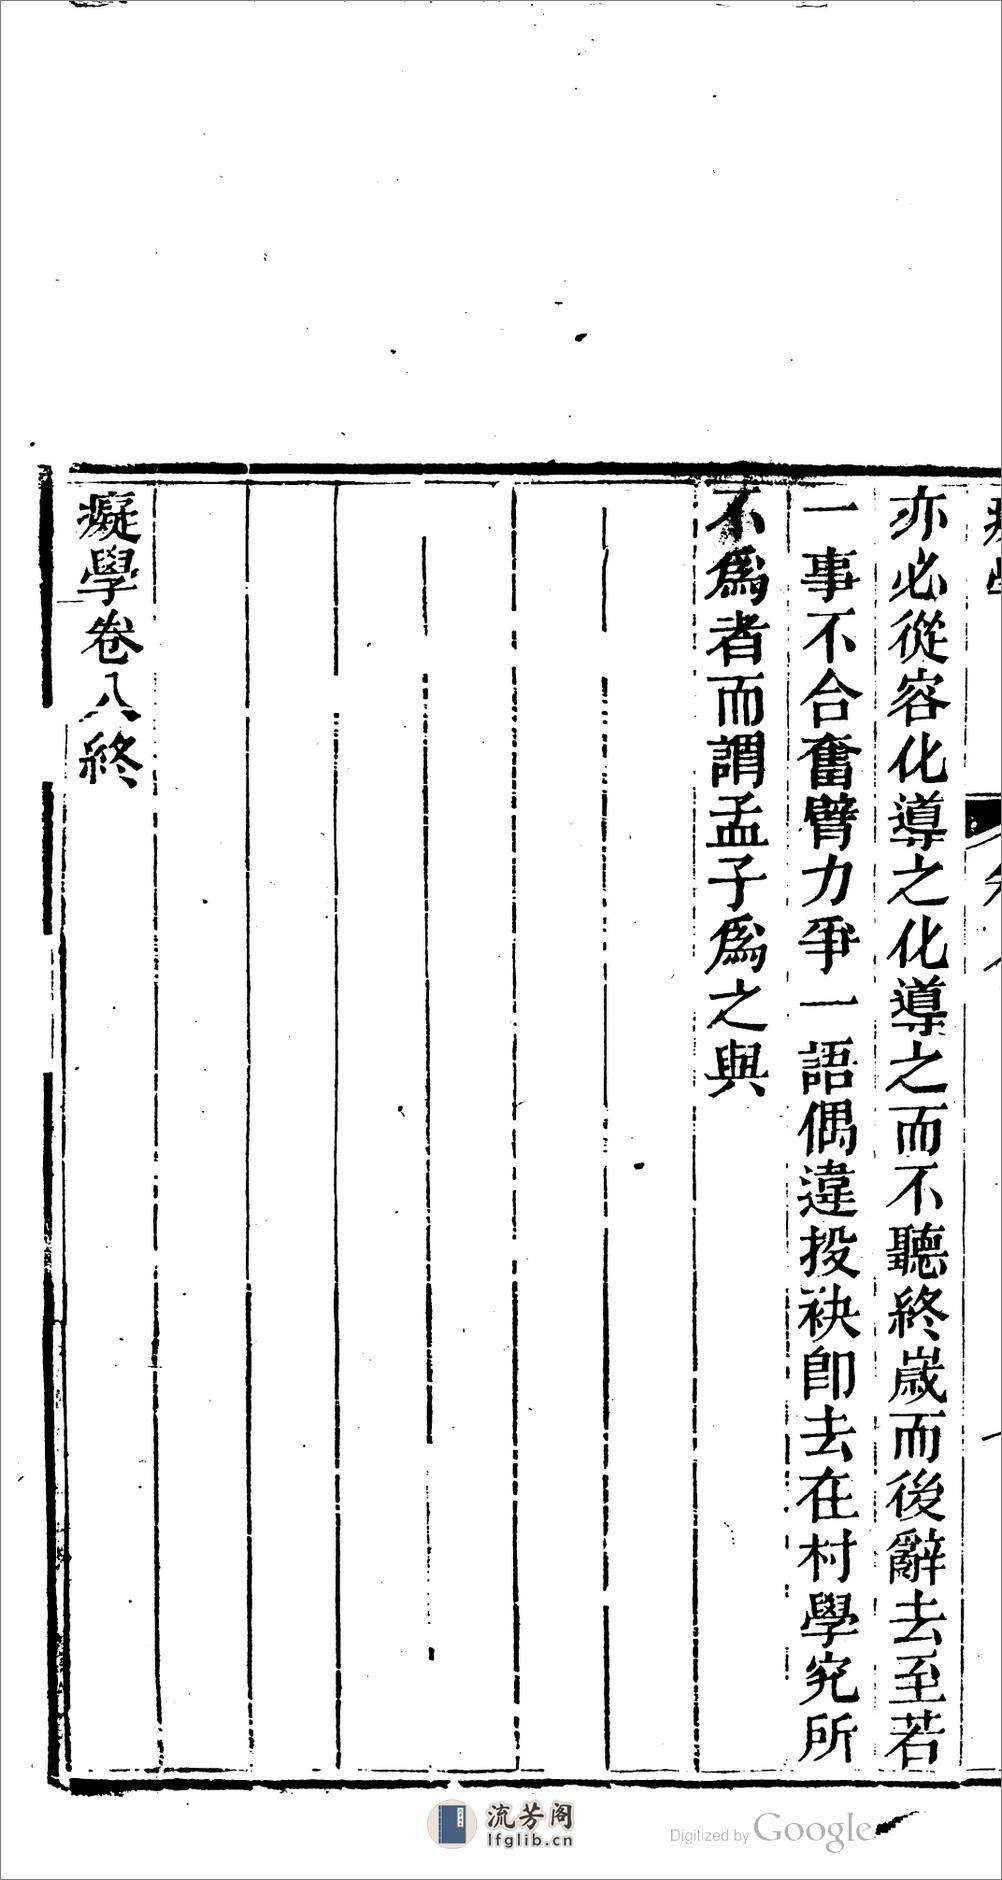 亦必從容化導之化導之而不聽終嵗而後辭去至若
一事不合奮臂力爭一語偶違投袂卽去在村學究所
不爲者而謂孟子爲之與
癡學卷八終
流芳阁
lfglib.cn
Digitized by Google